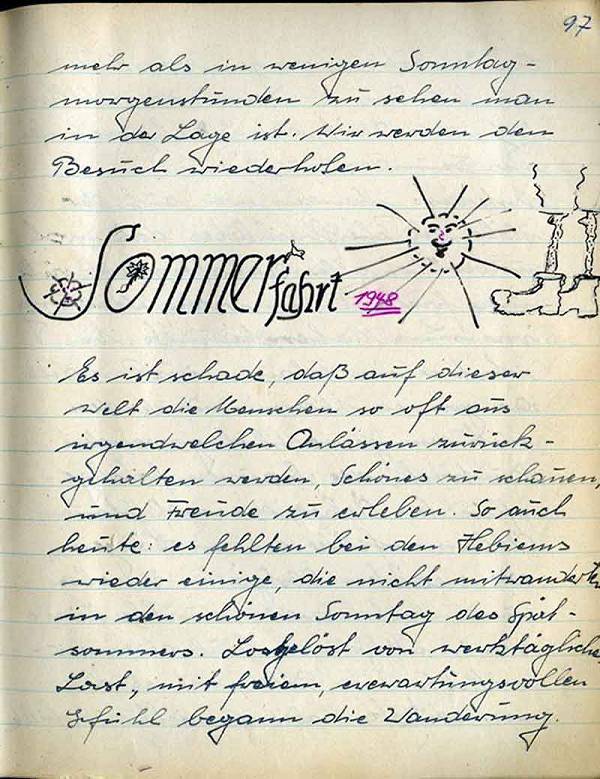 97
mehr als in wenigen Sonntag-
morgenstunden zu sehen man
in der Lage ist. Wir werden den
Besuch wiederholen.
Sommerfahrt 1948
Es ist schade, daß auf dieser
Welt die Menschen so oft aus
irgendwelchen Anlässen zurück-
gehalten werden, Schönes zu schauen,
und Freude zu erleben. So auch
heute: es fehlten bei den Hebiems
wieder einige, die nicht mitwanderten
in den schönen Sonntag des Spät-
sommers. Losgelöst von werktäglicher
Last, mit freiem, erwartungsvollen
Gefühl begann die Wanderung.